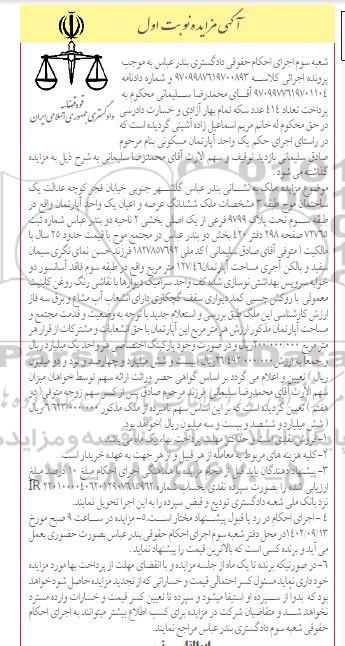 آگهی مزایده نوبت اول
قوه قضائیه
دادگستری جمهوری اسلامی ایران
شعبه سوم اجرای احکام حقوقی دادگستری بندر عباس به موجب
پرونده اجرائی کلاسه ۹۷۰۹۹۸۷۶۱۹۷۰۰۸۹۳ و شماره دادنامه
۹۷۰۹۹۷۷۶۱۹۷۰۱۱۰۴ آقــای محمدرضا سـلیمانی محکوم به
پرداخت تعداد ۴۱۴ عدد سکه تمام بهار آزادی و خسارت دادرسی
در حق محکوم له خانم مریم اسماعیل زاده آشینی گردیده است که
در راستای اجرای حکم یک واحد آپارتمان مسکونی بنام مرحوم
صادق سلیمانی بازدید توقیف و سهم الارث آقای محمدرضا سلیمانی به شرح ذیل به مزایده
گذاشته می شود.
موضوع مزایده ملک به نشـــانی بندر عباس گلشـهر جنوبی خیابان فجر کوچه عدالت یک
ساختمان موج طبقه ۳ مشخصات ملک ششدانگ عرصه و اعیان یک واحد آپارتمان واقع در
طبقه سـوم تحت پلاک ۹۷۹۹ فرعی از یک اصلی بخشی ۲ ناحیه دو بندر عباس شماره ثبت
۷۲۷۶۵ صفحه ۲۹۸ دفتر ۴۲۰ بخش دو بندر عباس در مجتمع موج با قیمت حدود ۲۵ سال با
مالکیت (متوفی آقای صادق سلیمانی) کد ملی ۱۸۲۷۸۵۷۶۹۲ فرزند حسن نمای نگری سیمان
سفید و بالکن آجری مساحت آپارتمان ۱۲۷/۴۶ متر مربع واقع در طبقه سوم فاقد آسانسور دو
خوابه سرویس بهداشتی نوسازی شده کف واحد سرامیک دیوارها با نقاشی رنگ روغن کابینت
معمولی با روکش چسبی کمد دیواری سقف گچکاری دارای انشعاب آب مشاع و برق سه فاز
ارزش کارشناسی این ملک طبق بررسی و استعلام جدید با توجه به وضعیت و قدمت مجتمع و
مساحت آپارتمان مذکور ارزش هر متر مربع این آپارتمان با حق انشعابات و مشترکات از قرار هر
متر مربع ۲۰۰/۰۰۰/۰۰۰ ریال و در صورت وجود پارکینگ اختصاصی هر واحد یک میلیارد ریال
و جمعا به ارزش ۲۶/۴۹۲/۰۰۰/۰۰۰ ریال (بیست و شش میلیارد و چهارصد و نود و دو میلیون
ریال) تعیین و اعلام می گردد بر اساس گواهی حصر وراثت ارائه سهم توسط خواهان میزان
سهم الارث آقای محمدرضا سلیمانی فرزند مرحوم صادق پس از کسر سهم زوجه متوفی (دو
هفتم) تعیین گردیده است که بر این اساس سهم نامبرده از ملک مذکور ۶/۶۲۳/۰۰۰/۰۰۰ ریال
(شش میلیارد و ششصد و بیست و سه میلیون ریال) خواهد بود.
۱- فروش نقدی است و حداکثر مهلت پرداخت بهاء یک ماه میباشد.
۲- کلیه هزینه های مربوط به معامله از هر قبیل و از هر جهت به عهده خریدار است.
۳- پیشنهاد دهندگان باید قبل از انجام مزایده با هماهنگی اجرای احکام مبلغ ۱۰ درصد مبلغ
ارزیابی شده را بصورت سپرده نقدی بحساب شماره IR
نزد بانک ملی شعبه دادگستری تودیع و قبض سپرده را به این اجرا تحویل نمایند.
۴- اجرای احکام در رد یا قبول پیشـنهاد مختار اسـت.۵- مزایده در سـاعت ۹ صبح مورخ
۱۴۰۲/۰۹/۱۳ در محل دفتر شعبه سوم اجرای احکام حقوقی بندر عباس بصورت حضوری بعمل
می آید و برنده کسی است که بالاترین قیمت را پیشنهاد نماید.
۶- در صورتیکه برنده تا یک ماه از جلسه مزایده و با انقضای مهلت از پرداخت بها مورد مزایده
خودداری نماید مسئول کسر احتمالی قیمت و خساراتی که از تجدید مزایده حاصل شود خواهد
بود که بدوا از سـپرده او استیفا میشود و سپرده تا تعیین کسر قیمت و خسارات وارده مسترد
نخواهد شــد و متقاضیان شرکت در مزایده برای کسب اطلاع بیشتر میتوانند به اجرای احکام
حقوقی شعبه سوم دادگستری بندر عباس مراجع نمایند.